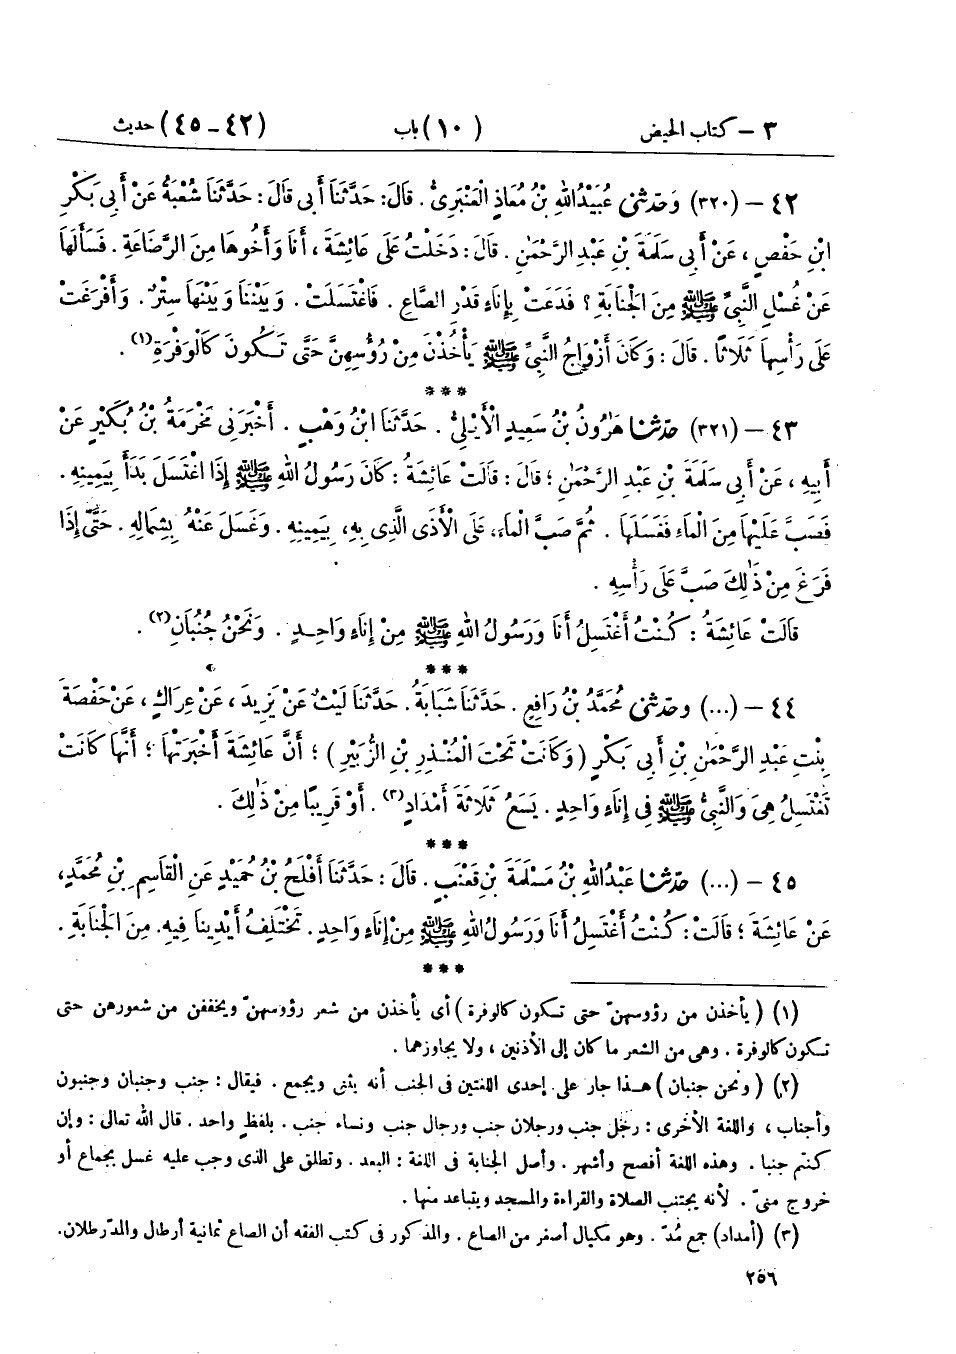 ٣ – كتاب الحيض (١٠) باب (٤٢ – ٤٥) حديث
٤٢ – (٣٢٠) وَحَدَّثَنِي عُبَيْدُ اللهِ بْنُ مُعَاذٍ الْعَنْبَرِىُّ . قَالَ : حَدَّثَنَا أَبِي قَالَ : حَدَّثَنَا شُعْبَةُ عَنْ أَبِي بَكْرِ
ابْنِ حَفْصٍ ، عَنْ أَبِي سَلَمَةَ بْنِ عَبْدِ الرَّحْمٰنِ . قَالَ : دَخَلْتُ عَلَى عَائِشَةَ ، أَنَا وَأَخُوهَا مِنَ الرَّضَاعَةِ . فَسَأَلَهَا
عَنْ غُسْلِ النَّبِيِّ ﷺ مِنَ الْجَنَابَةِ ؟ فَدَعَتْ بِإِنَاءٍ قَدْرِ الصَّاعِ . فَاغْتَسَلَتْ . وَبَيْنَنَا وَبَيْنَهَا سِتْرٌ . وَأَفْرَغَتْ
عَلَى رَأْسِهَا ثَلَاثًا . قَالَ : وَكَانَ أَزْوَاجُ النَّبِيِّ ﷺ يَأْخُذْنَ مِنْ رُؤُسِهِنَّ حَتَّى تَكُونَ كَالْوَفْرَةِ(١) .
***
٤٣ – (٣٢١) حَدَّثَنَا هٰرُونُ بْنُ سَعِيدٍ الْأَيْلِيُّ . حَدَّثَنَا ابْنُ وَهْبٍ . أَخْبَرَنِي مَخْرَمَةُ بْنُ بُكَيْرٍ عَنْ
أَبِيهِ ، عَنْ أَبِي سَلَمَةَ بْنِ عَبْدِ الرَّحْمٰنِ ؛ قَالَ : قَالَتْ عَائِشَةُ : كَانَ رَسُولُ اللهِ ﷺ إِذَا اغْتَسَلَ بَدَأَ بِيَمِينِهِ .
فَصَبَّ عَلَيْهَا مِنَ الْمَاءِ فَغَسَلَهَا . ثُمَّ صَبَّ الْمَاءَ، عَلَى الْأَذَى الَّذِي بِهِ، بِيَمِينِهِ . وَغَسَلَ عَنْهُ بِشِمَالِهِ . حَتَّى إِذَا
فَرَغَ مِنْ ذٰلِكَ صَبَّ عَلَى رَأْسِهِ .
قَالَتْ عَائِشَةُ : كُنْتُ أَغْتَسِلُ أَنَا وَرَسُولُ اللهِ ﷺ مِنْ إِنَاءٍ وَاحِدٍ . وَنَحْنُ جُنُبَانِ(٢) .
***
٤٤ – (...) وحَدَّثَنِي مُحَمَّدُ بْنُ رَافِعٍ . حَدَّثَنَا شَبَابَةُ . حَدَّثَنَا لَيْثٌ عَنْ يَزِيدَ ، عَنْ عِرَاكٍ ، عَنْ حَفْصَةَ
بِنْتِ عَبْدِ الرَّحْمٰنِ بْنِ أَبِي بَكْرٍ ( وَكَانَتْ تَحْتَ الْمُنْذِرِ بْنِ الزُّبَيْرِ ) ؛ أَنَّ عَائِشَةَ أَخْبَرَتْهَا ؛ أَنَّهَا كَانَتْ
تَغْتَسِلُ هِيَ وَالنَّبِيُّ ﷺ فِي إِنَاءٍ وَاحِدٍ . يَسَعُ ثَلَاثَةَ أَمْدَادٍ(٣) . أَوْ قَرِيبًا مِنْ ذٰلِكَ .
***
٤٥ – (...) حَدَّثَنَا عَبْدُ اللهِ بْنُ مَسْلَمَةَ بْنِ قَعْنَبٍ . قَالَ : حَدَّثَنَا أَفْلَحُ بْنُ حُمَيْدٍ عَنِ الْقَاسِمِ بْنِ مُحَمَّدٍ،
عَنْ عَائِشَةَ ؛ قَالَتْ : كُنْتُ أَغْتَسِلُ أَنَا وَرَسُولُ اللهِ ﷺ مِنْ إِنَاءٍ وَاحِدٍ . تَخْتَلِفُ أَيْدِينَا فِيهِ. مِنَ الْجَنَابَةِ .
***
(١) ( يأخذن من رؤوسهنّ حتى تكون كالوفرة ) أى يأخذن من شعر رؤوسهنّ ويخففن من شعورهن حتى
تكون كالوفرة . وهى من الشعر ما كان إلى الأذنين ، ولا يجاوزهما .
(٢) ( ونحن جنبان ) هذا جار على إحدى اللغتين فى الجنب أنه يثنى ويجمع . فيقال : جنب وجنبان وجنبون
وأجناب ، واللغة الأخرى : رجل جنب ورجلان جنب ورجال جنب ونساء جنب . بلفظ واحد . قال الله تعالى : وإن
كنتم جنبا . وهذه اللغة أفصح وأشهر . وأصل الجنابة فى اللغة : البعد . وتطلق على الذى وجب عليه غسل بجماع أو
خروج منىّ . لأنه يجتنب الصلاة والقراءة والمسجد ويتباعد منها .
(٣) (أمداد) جمع مُدّ . وهو مكيال أصغر من الصاع . والمذكور فى كتب الفقه أن الصاع ثمانية أرطال والمدّ رطلان.
٢٥٦